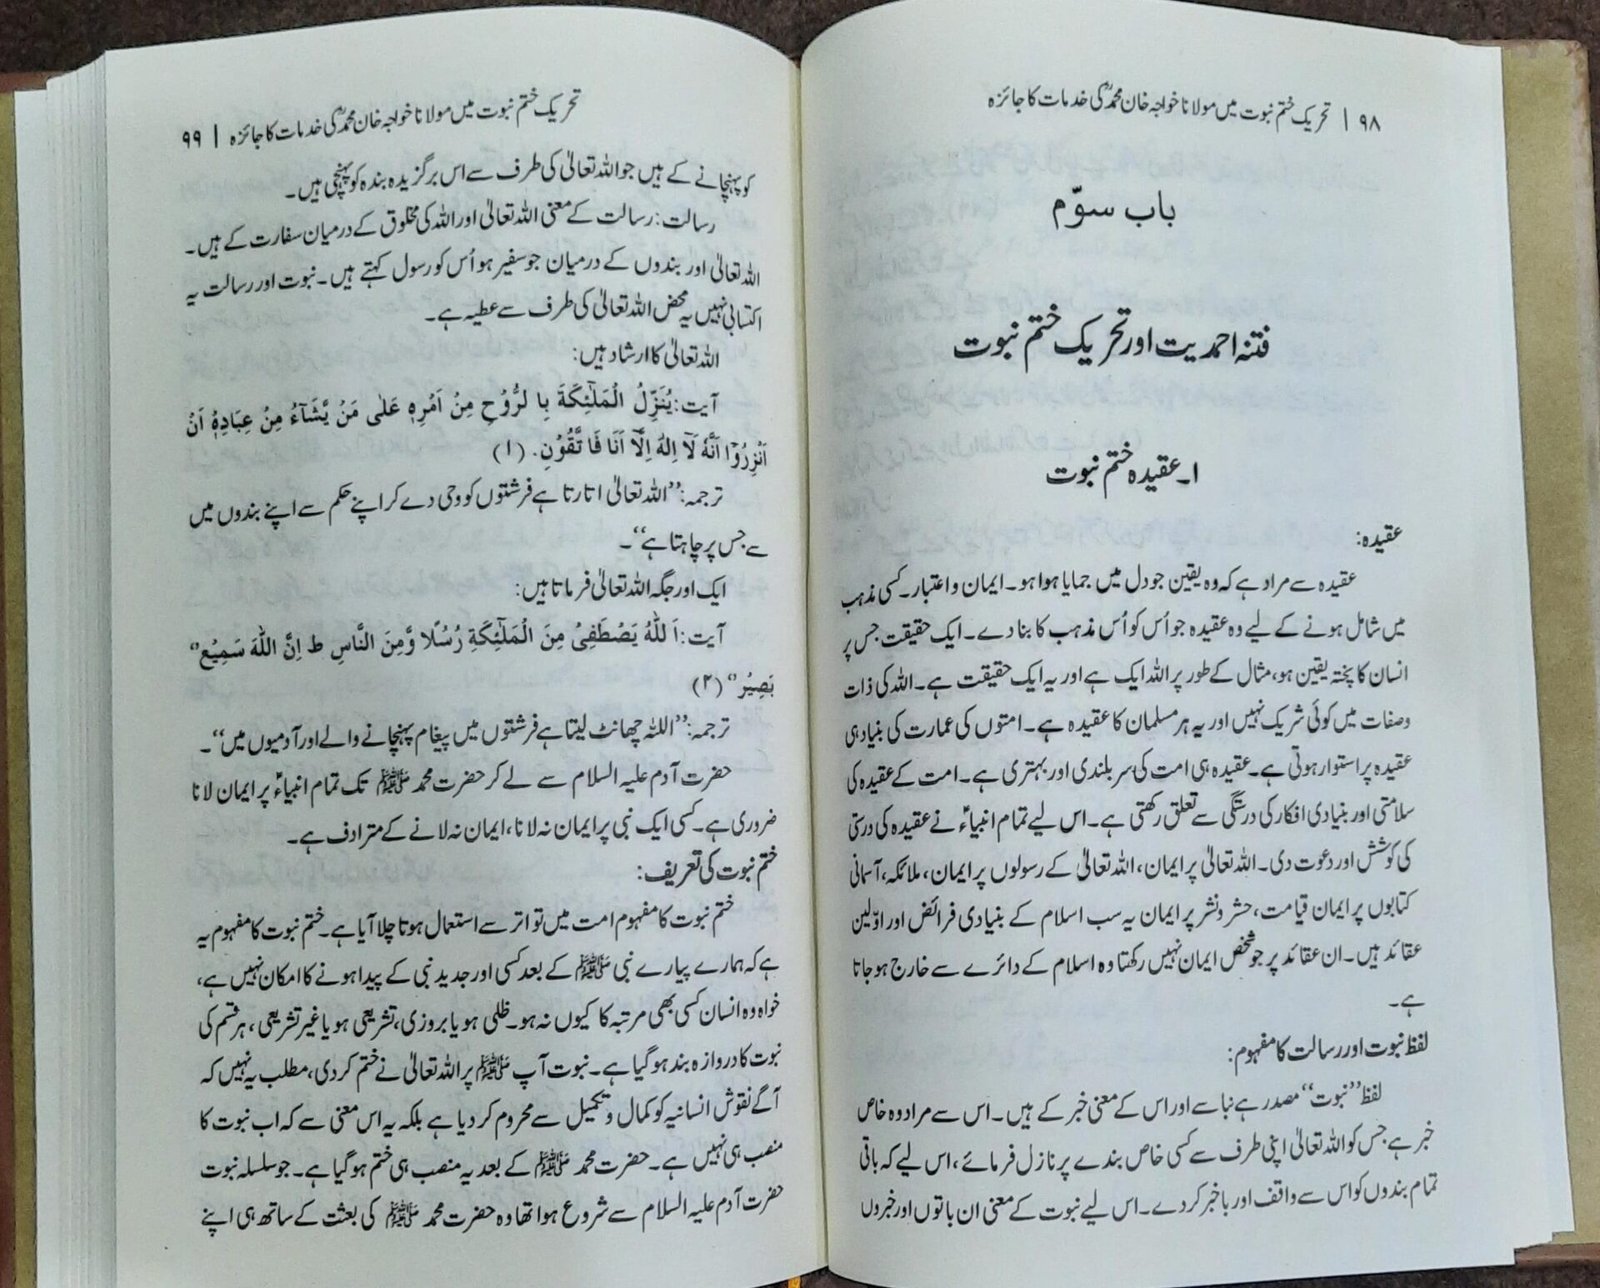 ۹۸ | تحریک ختم نبوت میں مولانا خواجہ خان محمدؒ کی خدمات کا جائزہ
باب سوّم
فتنہ احمدیت اور تحریک ختم نبوت
۱۔ عقیدہ ختم نبوت
عقیدہ:
عقیدہ سے مراد ہے کہ وہ یقین جو دل میں جمایا ہوا ہو۔ ایمان و اعتبار۔ کسی مذہب
میں شامل ہونے کے لیے وہ عقیدہ جو اُس کو اُس مذہب کا بنا دے۔ ایک حقیقت جس پر
انسان کا پختہ یقین ہو، مثال کے طور پر اللہ ایک ہے اور یہ ایک حقیقت ہے۔ اللہ کی ذات
وصفات میں کوئی شریک نہیں اور یہ ہر مسلمان کا عقیدہ ہے۔ امتوں کی عمارت کی بنیاد ہی
عقیدہ پر استوار ہوتی ہے۔ عقیدہ ہی امت کی سربلندی اور بہتری ہے۔ امت کے عقیدہ کی
سلامتی اور بنیادی افکار کی درستگی سے تعلق رکھتی ہے۔ اس لیے تمام انبیاءؑ نے عقیدہ کی درستی
کی کوشش اور دعوت دی۔ اللہ تعالیٰ پر ایمان، اللہ تعالیٰ کے رسولوں پر ایمان، ملائکہ، آسمانی
کتابوں پر ایمان قیامت، حشر و نشر پر ایمان یہ سب اسلام کے بنیادی فرائض اور اوّلین
عقائد ہیں۔ ان عقائد پر جو شخص ایمان نہیں رکھتا وہ اسلام کے دائرے سے خارج ہو جاتا
ہے۔
لفظ نبوت اور رسالت کا مفہوم:
لفظ ’’نبوت‘‘ مصدر ہے نبا سے اور اس کے معنی خبر کے ہیں۔ اس سے مراد وہ خاص
خبر ہے جس کو اللہ تعالیٰ اپنی طرف سے کسی خاص بندے پر نازل فرمائے، اس لیے کہ باقی
تمام بندوں کو اس سے واقف اور باخبر کر دے۔ اس لیے نبوت کے معنی ان باتوں اور خبروں
تحریک ختم نبوت میں مولانا خواجہ خان محمدؒ کی خدمات کا جائزہ | ۹۹
کو پہنچانے کے ہیں جو اللہ تعالیٰ کی طرف سے اس برگزیدہ بندہ کو پہنچی ہیں۔
رسالت: رسالت کے معنی اللہ تعالیٰ اور اللہ کی مخلوق کے درمیان سفارت کے ہیں۔
اللہ تعالیٰ اور بندوں کے درمیان جو سفیر ہو اُس کو رسول کہتے ہیں۔ نبوت اور رسالت یہ
اکتسابی نہیں یہ محض اللہ تعالیٰ کی طرف سے عطیہ ہے۔
اللہ تعالیٰ کا ارشاد ہیں:
آیت: یُنَزِّلُ الْمَلٰٓئِکَةَ بِا لرُّوْحِ مِنْ اَمْرِهٖ عَلٰی مَنْ یَّشَآءُ مِنْ عِبَادِهٖٓ اَنْ
اَنْزِرُوْٓا اَنَّهٗ لَآ اِلٰهَ اِلَّآ اَنَا فَا تَّقُوْنِ. (۱)
ترجمہ: ’’اللہ تعالیٰ اتارتا ہے فرشتوں کو وحی دے کر اپنے حکم سے اپنے بندوں میں
سے جس پر چاہتا ہے‘‘۔
ایک اور جگہ اللہ تعالیٰ فرماتا ہیں:
آیت: اَ للّٰهُ یَصْطَفِیْ مِنَ الْمَلٰٓئِکَةِ رُسُلًا وَّمِنَ النَّاسِ ط اِنَّ اللّٰهَ سَمِیْعٌ
بَصِیْرٌ (۲)
ترجمہ: ’’اللہ چھانٹ لیتا ہے فرشتوں میں پیغام پہنچانے والے اور آدمیوں میں‘‘۔
حضرت آدم علیہ السلام سے لے کر حضرت محمد ﷺ تک تمام انبیاءؑ پر ایمان لانا
ضروری ہے۔ کسی ایک نبی پر ایمان نہ لانا، ایمان نہ لانے کے مترادف ہے۔
ختم نبوت کی تعریف:
ختم نبوت کا مفہوم امت میں تواتر سے استعمال ہوتا چلا آیا ہے۔ ختم نبوت کا مفہوم یہ
ہے کہ ہمارے پیارے نبی ﷺ کے بعد کسی اور جدید نبی کے پیدا ہونے کا امکان نہیں ہے،
خواہ وہ انسان کسی بھی مرتبہ کا کیوں نہ ہو۔ ظلی ہو یا بروزی، تشریعی ہو یا غیر تشریعی، ہر قسم کی
نبوت کا دروازہ بند ہو گیا ہے۔ نبوت آپ ﷺ پر اللہ تعالیٰ نے ختم کر دی، مطلب یہ نہیں کہ
آگے نقوش انسانیہ کو کمال و تکمیل سے محروم کر دیا ہے بلکہ یہ اس معنی سے کہ اب نبوت کا
منصب ہی نہیں ہے۔ حضرت محمد ﷺ کے بعد یہ منصب ہی ختم ہو گیا ہے۔ جو سلسلہ نبوت
حضرت آدم علیہ السلام سے شروع ہوا تھا وہ حضرت محمد ﷺ کی بعثت کے ساتھ ہی اپنے